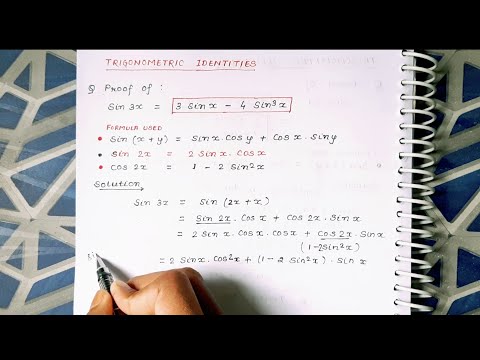 TRIGONOMETRIC IDENTITIES
Q Proof of :
Sin 3x = 3 Sin x - 4 Sin³x
FORMULA USED
• Sin (x+y) = Sinx. Cosy + Cosx. Siny
• Sin 2x = 2 Sinx. Cosx
• Cos 2x = 1 - 2 Sin²x
Solution
Sin 3x = Sin (2x + x)
= Sin 2x. Cos x + Cos 2x. Sin x
= 2 Sin x. Cos x. Cos x + Cos 2x. Sin x
(1-2Sin²x)
= 2 Sinx. Cos²x + (1-2 Sin²x). Sin x